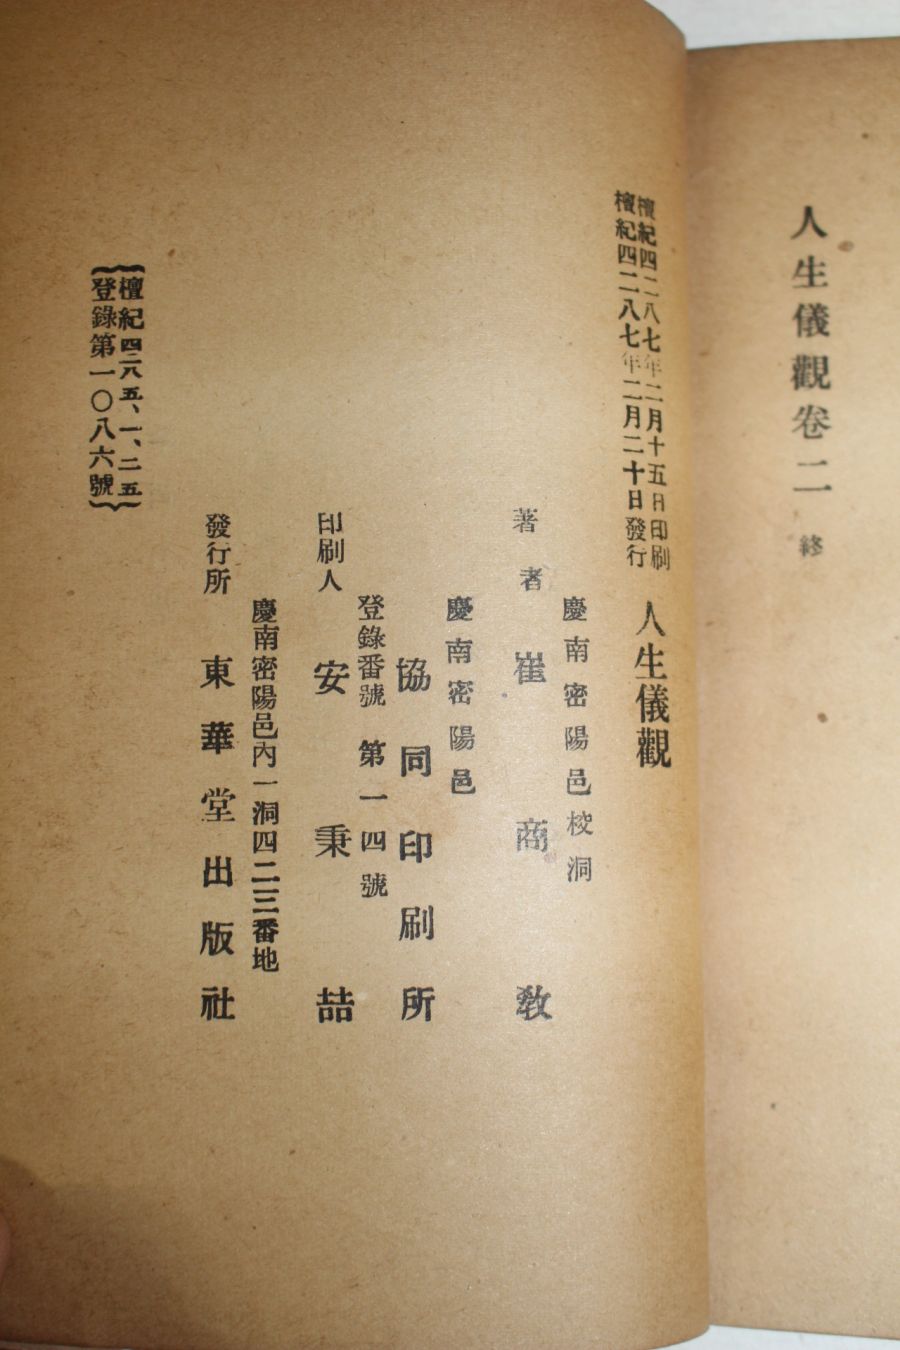 人生儀觀卷二 終
檀紀四二八七年二月十五日印刷
檀紀四二八七年二月二十日發行
人生儀觀
慶南密陽邑校洞
著者 崔商敎
慶南密陽邑
協同印刷所
登錄番號 第一四號
印刷人 安秉喆
慶南密陽邑內一洞四二三番地
發行所 東華堂出版社
檀紀四二八五、一、二五
登錄第一〇八六號